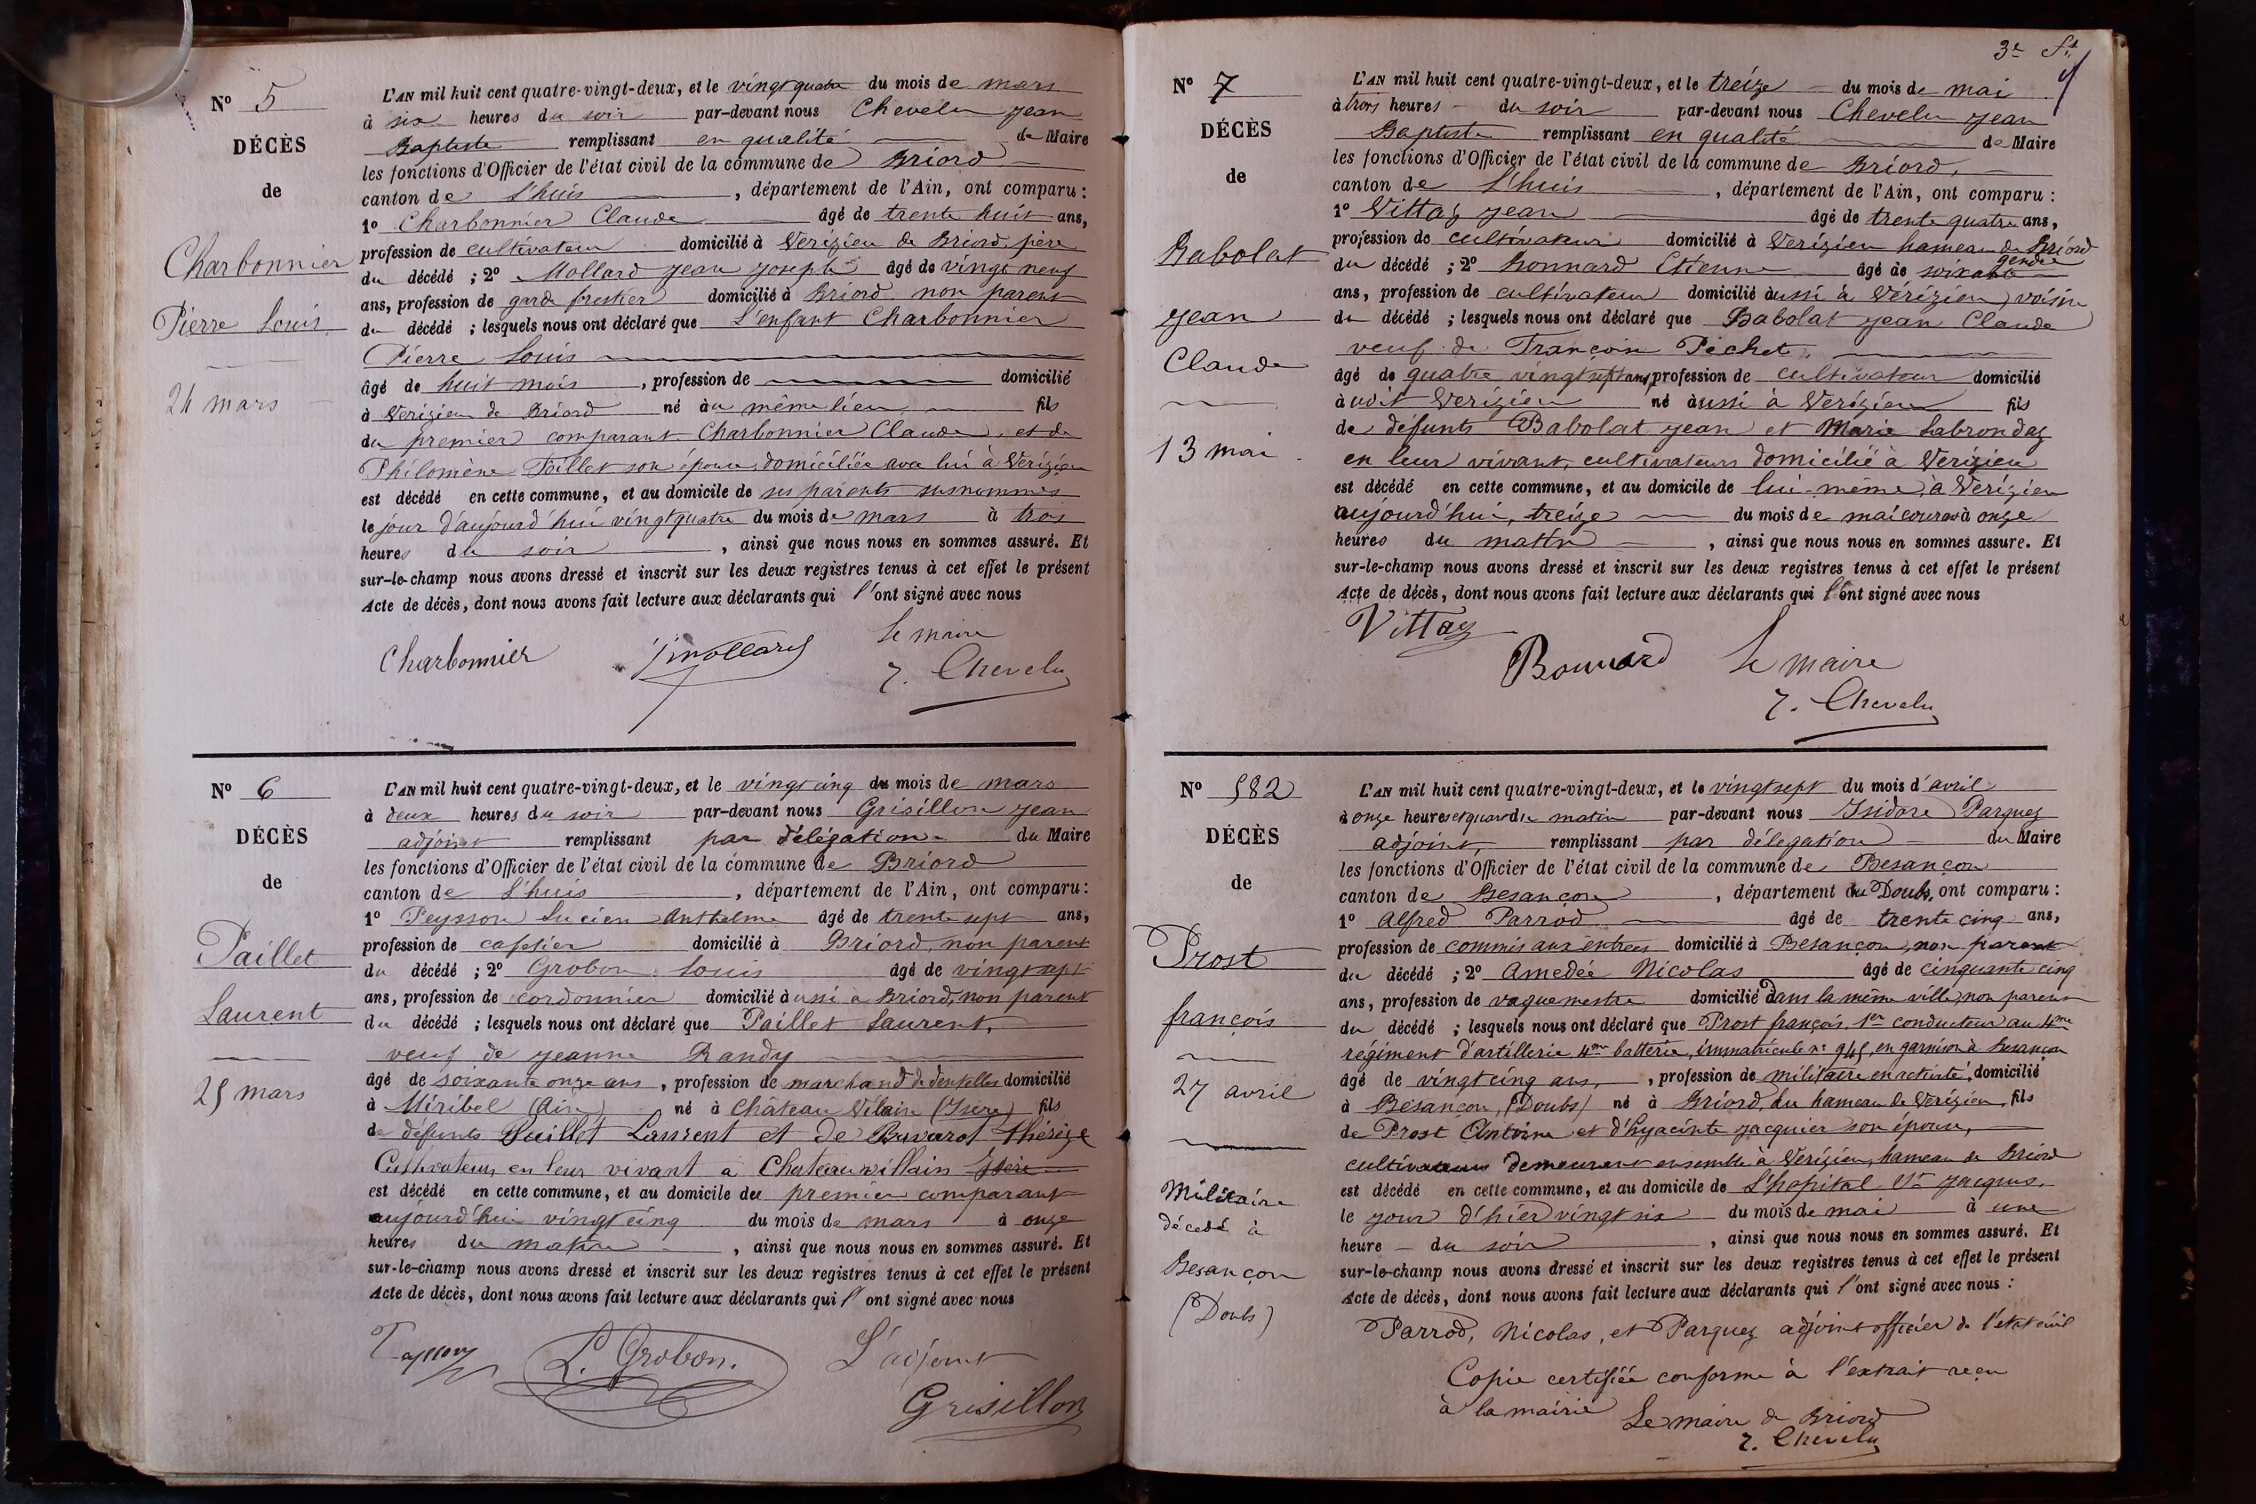 N° 5
DÉCÈS
de
Charbonnier
Pierre Louis
24 mars
L'AN mil huit cent quatre-vingt-deux, et le vingt quatre du mois de mars
à six heures du soir par-devant nous Chevelu Jean
Baptiste remplissant en qualité de Maire
les fonctions d'Officier de l'état civil de la commune de Briord
canton de L'huis, département de l'Ain, ont comparu :
1° Charbonnier Claude âgé de trente huit ans,
profession de cultivateur domicilié à Verizieu de Briord, père
du décédé ; 2° Mollard Jean Joseph âgé de vingt neuf
ans, profession de garde forestier domicilié à Briord non parent
du décédé ; lesquels nous ont déclaré que L'enfant Charbonnier
Pierre Louis
âgé de huit mois, profession de domicilié
à Verizieu de Briord né au même lieu, fils
du premier comparant Charbonnier Claude, et de
Philomène Teillet son épouse, domiciliée avec lui à Verizieu
est décédé en cette commune, et au domicile de ses parents susnommés
le jour d'aujourd'hui vingt quatre du mois de mars à trois
heures du soir, ainsi que nous nous en sommes assuré. Et
sur-le-champ nous avons dressé et inscrit sur les deux registres tenus à cet effet le présent
Acte de décès, dont nous avons fait lecture aux déclarants qui l'ont signé avec nous
Charbonnier Jmollard Le maire
J. Chevelu
N° 6
DÉCÈS
de
Paillet
Laurent
25 mars
L'AN mil huit cent quatre-vingt-deux, et le vingt cinq du mois de mars
à deux heures du soir par-devant nous Grisillon Jean
adjoint remplissant par délégation du Maire
les fonctions d'Officier de l'état civil de la commune de Briord
canton de L'huis, département de l'Ain, ont comparu :
1° Peysson Lucien Anthelme âgé de trente sept ans,
profession de cafetier domicilié à Briord, non parent
du décédé ; 2° Grobon Louis âgé de vingt sept
ans, profession de cordonnier domicilié aussi à Briord, non parent
du décédé ; lesquels nous ont déclaré que Paillet Laurent,
veuf de Jeanne Randy
âgé de soixante onze ans, profession de marchand de dentelles domicilié
à Miribel (Ain) né à Château Vilain (Isère) fils
de défunts Paillet Laurent et de Buvarot thérèze
Cultivateurs en leur vivant a Chateauvillain Isère
est décédé en cette commune, et au domicile du premier comparant
aujourd'hui vingt cinq du mois de mars à onze
heures du matin, ainsi que nous nous en sommes assuré. Et
sur-le-champ nous avons dressé et inscrit sur les deux registres tenus à cet effet le présent
Acte de décès, dont nous avons fait lecture aux déclarants qui l'ont signé avec nous
L. Grobon. L'adjoint
Grisillon
3e ft
N° 7
DÉCÈS
de
Babolat
Jean
Claude
13 mai
L'AN mil huit cent quatre-vingt-deux, et le treize du mois de mai
à trois heures du soir par-devant nous Chevelu Jean
Baptiste remplissant en qualité de Maire
les fonctions d'Officier de l'état civil de la commune de Briord,
canton de L'huis, département de l'Ain, ont comparu :
1° Vittoz Jean âgé de trente quatre ans,
profession de cultivateur domicilié à Verizieu hameau de Briord
gendre
du décédé ; 2° Bonnard Etienne âgé de soixante
ans, profession de cultivateur domicilié aussi à Vérizieu, voisin
du décédé ; lesquels nous ont déclaré que Babolat Jean Claude
veuf de Françoise Péchet,
âgé de quatre vingt sept ans, profession de cultivateur domicilié
audit Verizieu né aussi à Verizieu fils
de défunts Babolat Jean et Marie Labrondaz
en leur vivant, cultivateurs domicilié à Verizieu
est décédé en cette commune, et au domicile de lui-même, à Verizieu
aujourd'hui, treize du mois de mai courant à onze
heures du matin, ainsi que nous nous en sommes assuré. Et
sur-le-champ nous avons dressé et inscrit sur les deux registres tenus à cet effet le présent
Acte de décès, dont nous avons fait lecture aux déclarants qui l'ont signé avec nous
Vittoz
Bonnard Le maire
J. Chevelu
N° 582
DÉCÈS
de
Prost
françois
27 avril
Militaire
décédé à
Besançon
(Doubs)
L'AN mil huit cent quatre-vingt-deux, et le vingt sept du mois d'avril
à onze heures et quart du matin par-devant nous Isidore Parguez
adjoint, remplissant par délégation du Maire
les fonctions d'Officier de l'état civil de la commune de Besançon
canton de Besançon, département du Doubs, ont comparu :
1° Alfred Parrod âgé de trente cinq ans,
profession de commis aux entrees domicilié à Besançon, non parent
du décédé ; 2° Amedée Nicolas âgé de cinquante cinq
ans, profession de vaguemestre domicilié dans la même ville, non parent
du décédé ; lesquels nous ont déclaré que Prost françois 1er conducteur au 4me
régiment d'artillerie 4me batterie, immatricule n° 945, en garnison à Besançon
âgé de vingt cinq ans, profession de militaire en activité, domicilié
à Besançon, (Doubs) né à Briord, du hameau de Verizieu, fils
de Prost Antoine et d'hyacinte Jacquier son épouse,
cultivateurs demeurant ensemble à Verizieu, hameau de Briord
est décédé en cette commune, et au domicile de L'hopital St Jacques,
le jour d'hier vingt six du mois de mai à une
heure du soir, ainsi que nous nous en sommes assuré. Et
sur-le-champ nous avons dressé et inscrit sur les deux registres tenus à cet effet le présent
Acte de décès, dont nous avons fait lecture aux déclarants qui l'ont signé avec nous :
Parrod, Nicolas, et Parguez adjoint officier de l'état civil
Copie certifiée conforme à l'extrait reçu
à la mairie Le maire de Briord
J. Chevelu